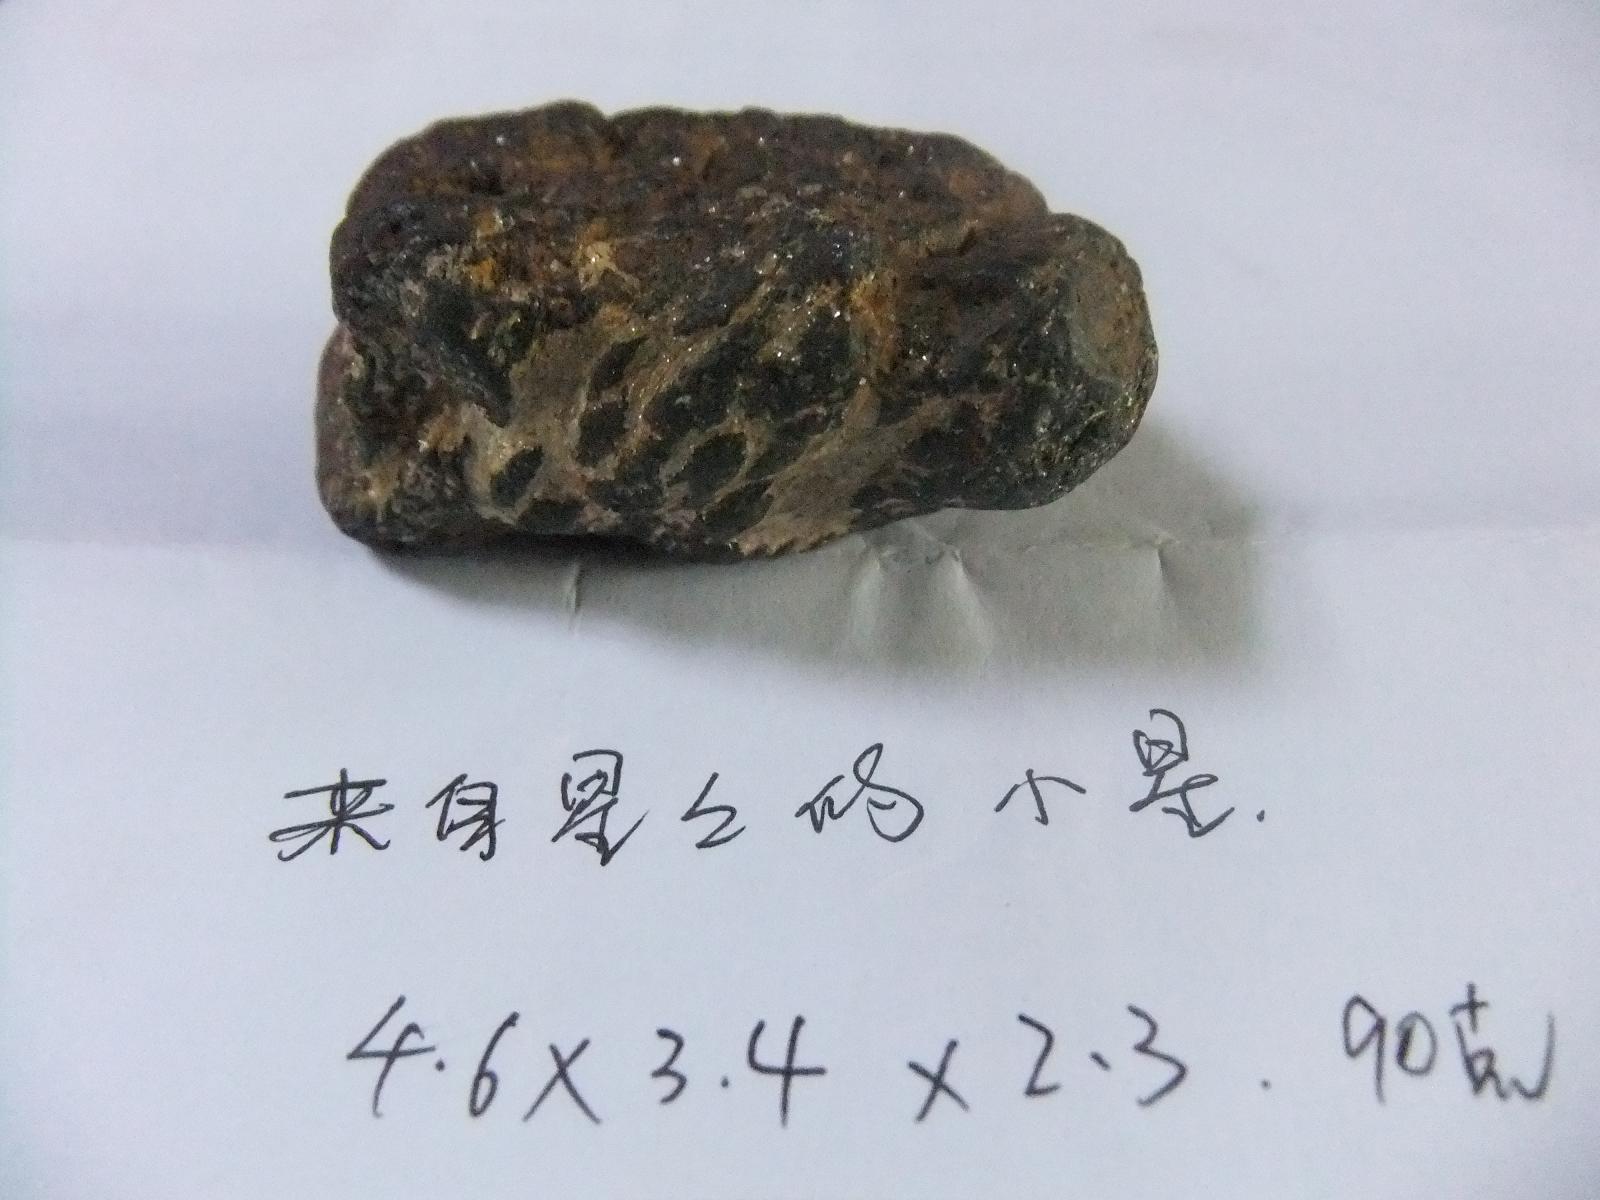 来自星上的小星.
4.6×3.4×2.3. 90克